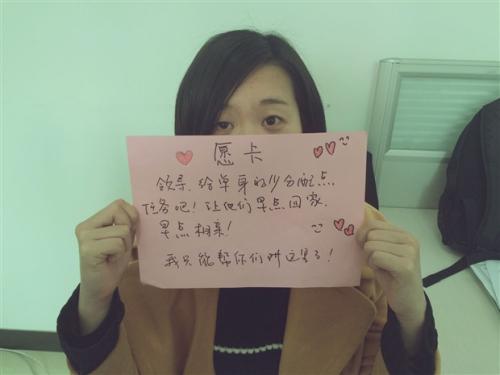 愿卡
领导，给单身的少分配点
任务吧！让他们早点回家，
早点相亲！
我只能帮你们到这里了！